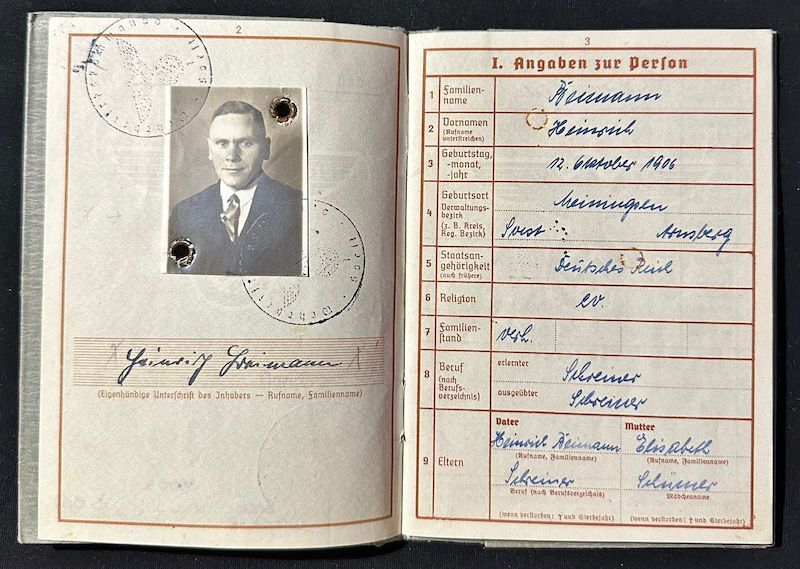 2
Heinrich
(Eigenhändige Unterschrift des Inhabers — Rufname, Familienname)
3
I. Angaben zur Person
1 Familien-
name
Reimann
2 Vornamen
(Rufname
unterstreichen)
Heinrich
3 Geburtstag,
-monat,
-jahr
12. Oktober 1906
4 Geburtsort
Verwaltungs-
bezirk
(z. B. Kreis,
Reg. Bezirk)
Meiningsen
Soest Arnsberg
5 Staatsan-
gehörigkeit
(auch frühere)
Deutsches Reich
6 Religion
ev.
7 Familien-
stand
verh.
8 Beruf
(nach
Berufs-
verzeichnis)
erlernter
Schreiner
ausgeübter
Schreiner
9 Eltern
Vater Mutter
Heinrich Reimann Elisabeth
(Rufname, Familienname) (Rufname, Familienname)
Schreiner
Beruf (nach Berufsverzeichnis) Mädchenname
(wenn verstorben: † und Sterbejahr) (wenn verstorben: † und Sterbejahr)